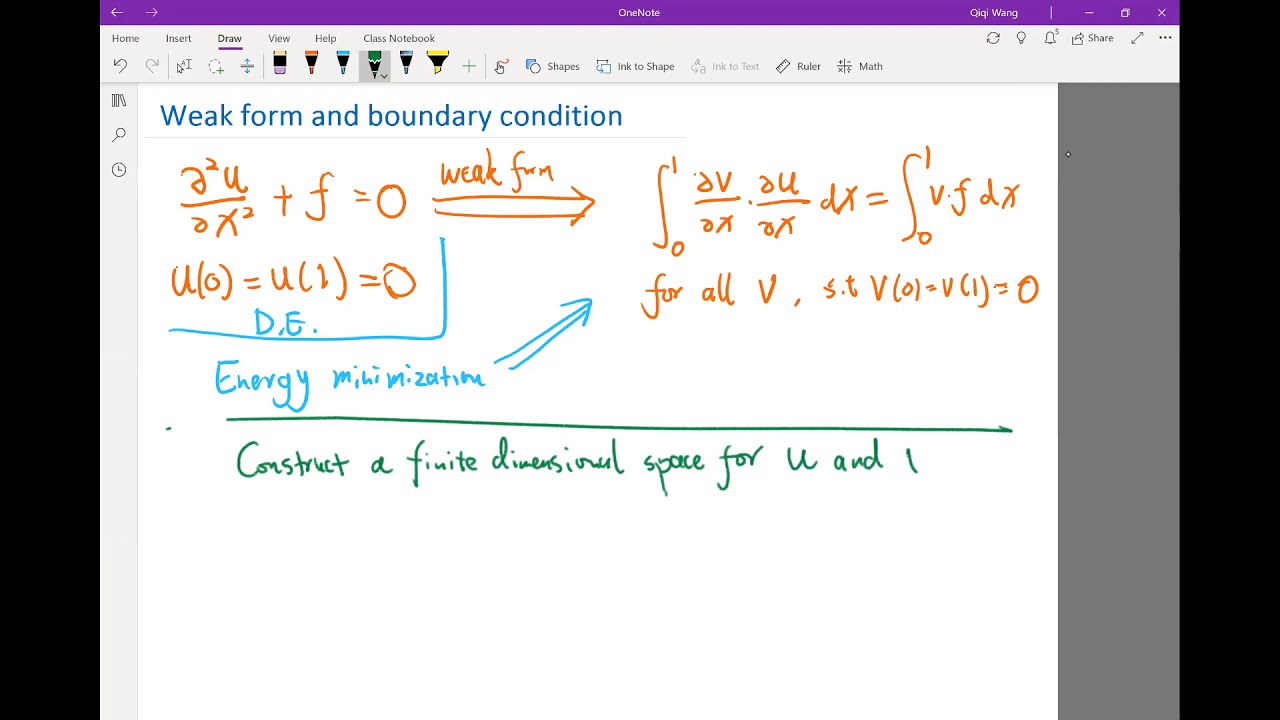 OneNote
Qiqi Wang
Home Insert Draw View Help Class Notebook
5
Share
Shapes Ink to Shape Ink to Text Ruler Math
Weak form and boundary condition
∂²u/∂x² + f = 0 weak form ⟹ ∫₀¹ ∂v/∂x · ∂u/∂x dx = ∫₀¹ v·f dx
u(0) = u(1) = 0 for all v, s.t v(0) = v(1) = 0
D.E.
Energy minimization
Construct a finite dimensional space for u and